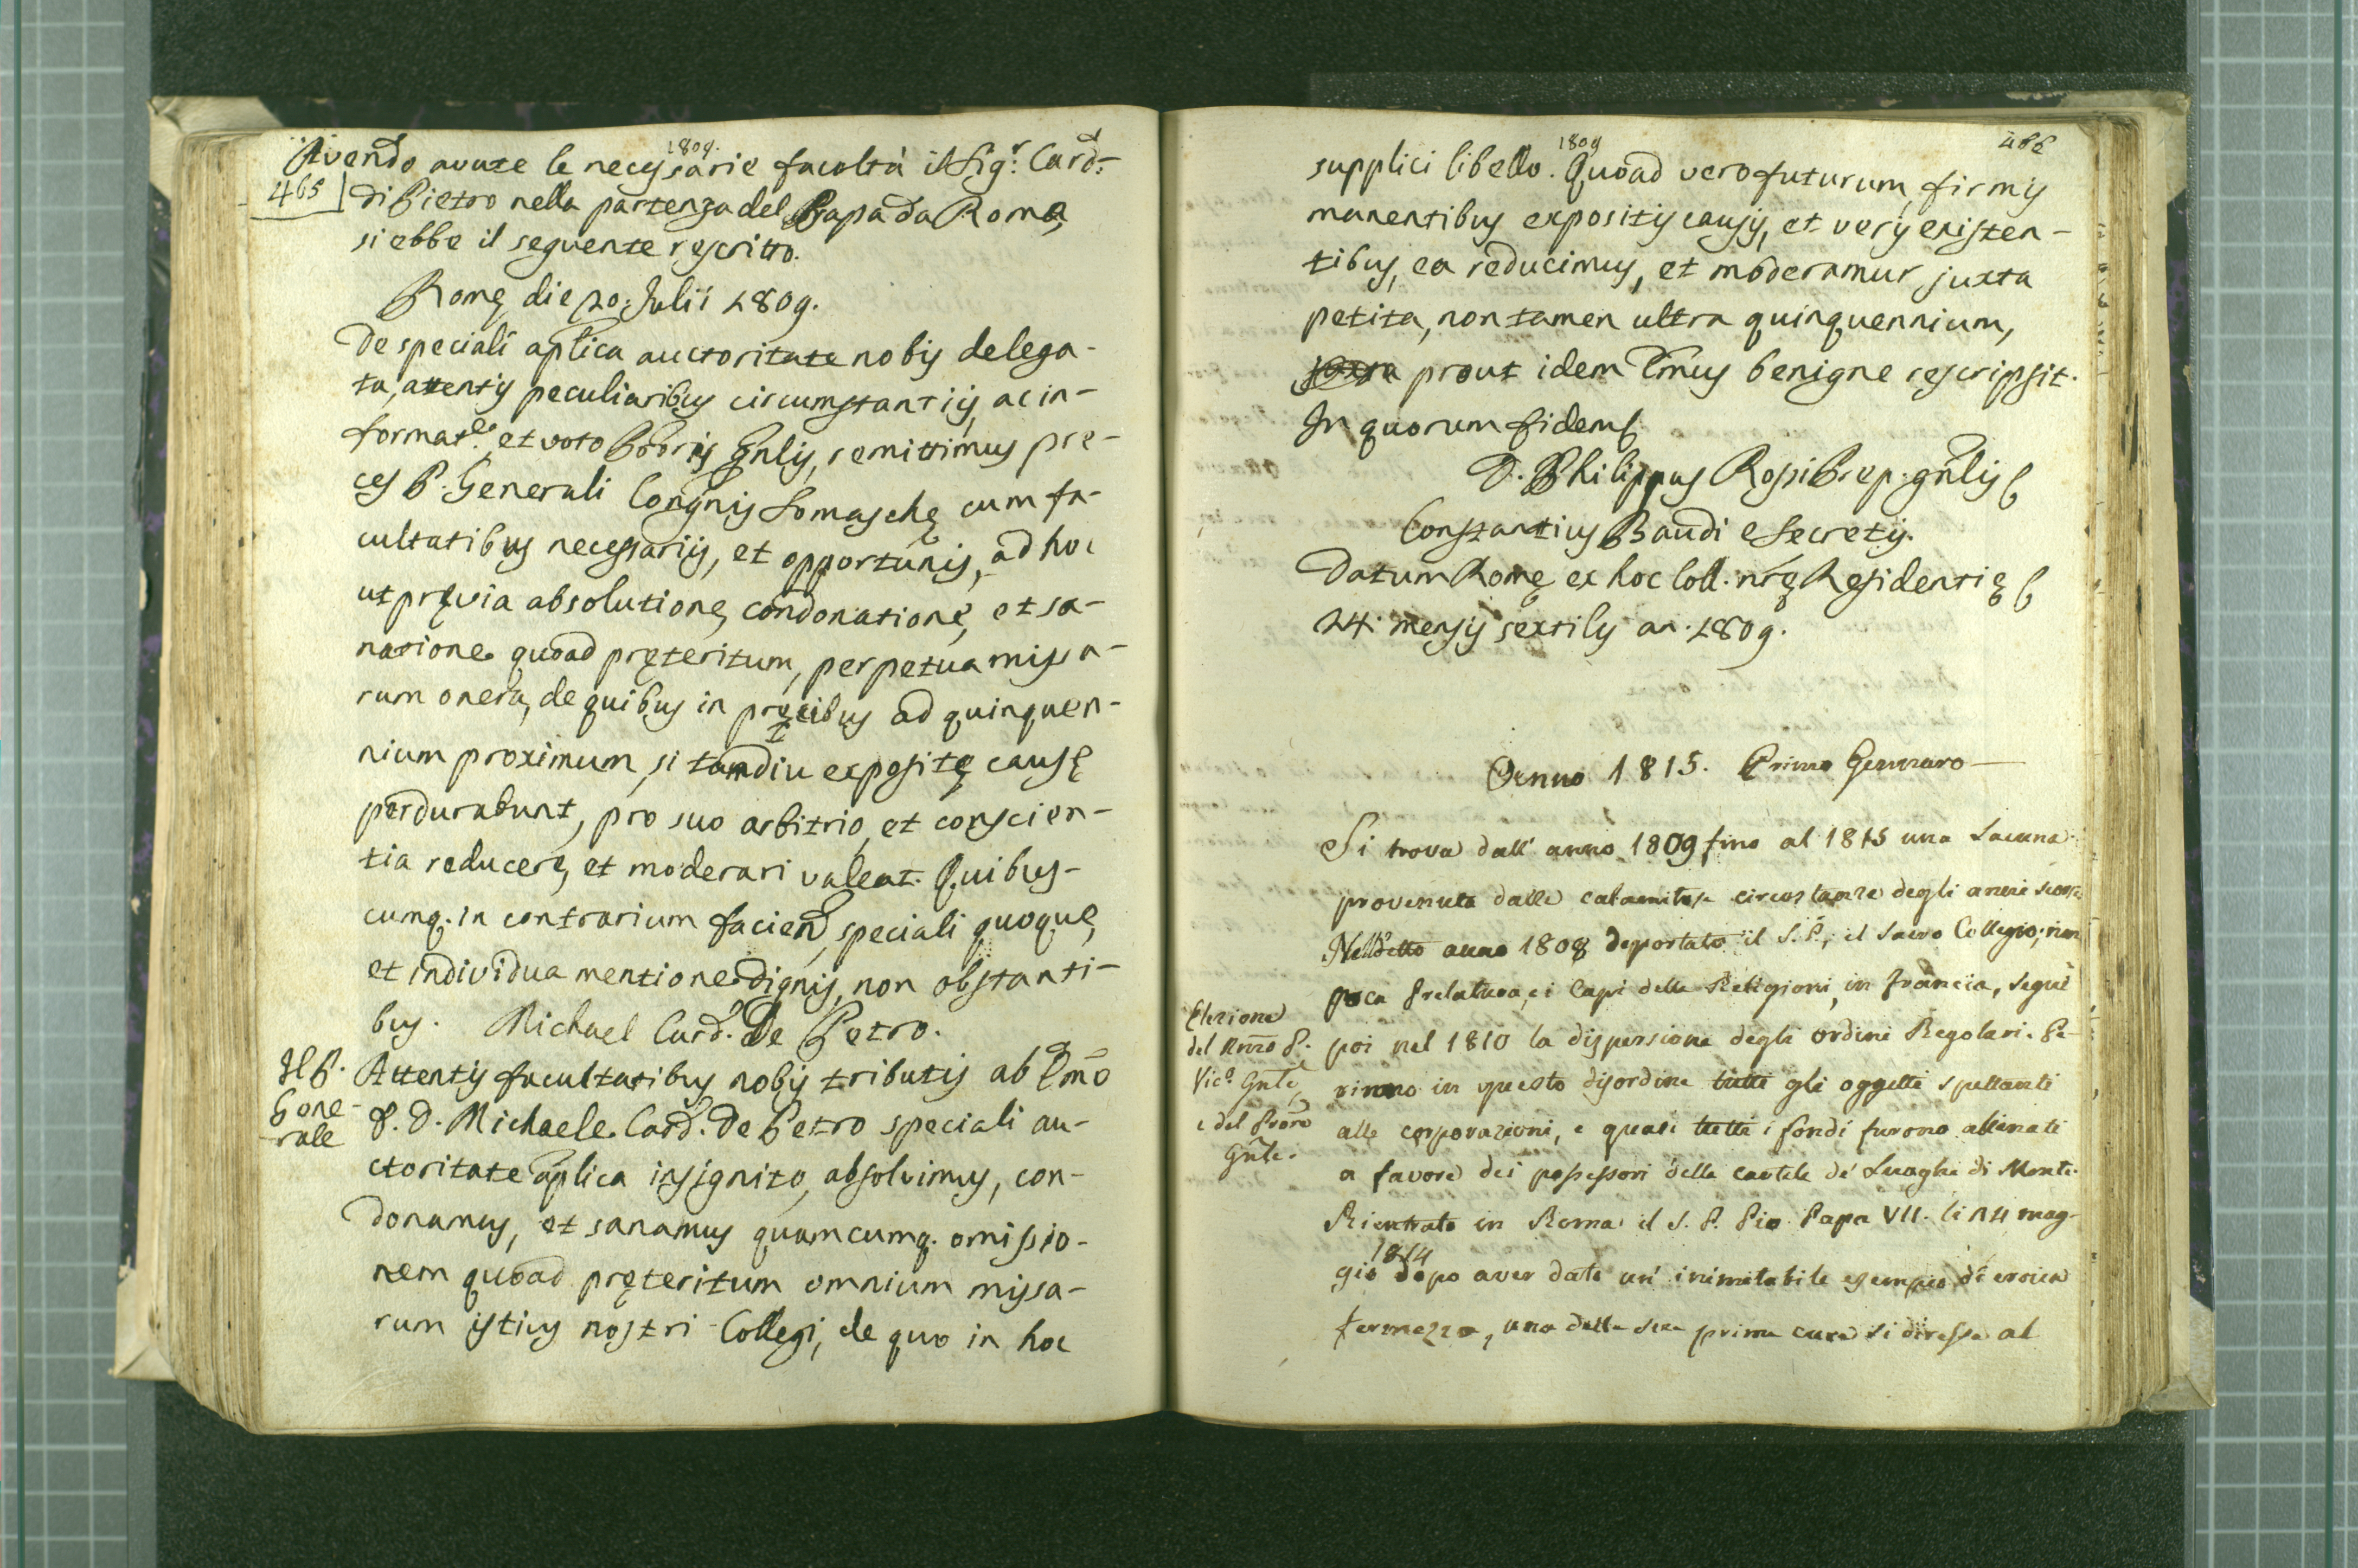 1809.
Avendo avute le necessarie facoltà il Sig.r Card.
465
di Pietro nella partenza del Papa da Roma,
si ebbe il seguente rescritto.
Romę die 20. Julii 1809.
De speciali aplica auctoritate nobis delega-
ta, attentis peculiaribus circumstantiis, ac in-
format.e et voto Pris Gnlis, remittimus pre-
ces P. Generali Congnis Somaschę cum fa-
cultatibus necessariis, et opportunis, ad hoc
ut pręvia absolutione, condonatione, et sa-
natione quoad pręteritum, perpetua missa-
rum onera, de quibus in pręcibus ad quinquen-
nium proximum, si tamdiu expositę causę
perdurabunt, pro suo arbitrio, et conscien-
tia reducere, et moderari valeat. Quibus-
cumq. in contrarium faciend, speciali quoque,
et individua mentione dignis, non obstanti-
bus. Michael Card. De Petro.
Il P.
Gene-
rale
Attentis facultatibus nobis tributis ab Emo
P. D. Michaele Card. De Petro speciali au-
ctoritate aplica insignito, absolvimus, con-
donamus, et sanamus quamcumq. omissio-
nem quoad pręteritum omnium missa-
rum istius nostri Collegi, de quo in hoc
1809
466
supplici libello. Quoad vero futurum, firmis
manentibus expositis causis, et veris existen-
tibus, ea reducimus, et moderamur juxta
petita, non tamen ultra quinquennium,
prout idem Emus benigne rescripsit.
In quorum fidem
D. Philippus Rossi Prep. gnlis
Constantius Baudi e Secretis.
Datum Romę ex hoc Coll. nrę Residentię
24. mensis sextilis an. 1809.
Anno 1815. Primo Gennaro
Si trova dall' anno 1809 fino al 1815 una Lacuna
provenuta dalle calamitose circostanze degli anni scorsi
Nell detto anno 1808 deportato il S. P., il Sacro Collegio, non
poca Prelatura, ei Capi delle Religioni, in Francia, seguì
Elezione
del Rmo P.
Vic.o Gnle,
e del Prore
Gnle.
poi nel 1810 la dispersione degli ordini Regolari. Pe-
rirono in questo disordine tutti gli oggetti spettanti
alle corporazioni, e quasi tutti i fondi furono alienati
a favore dei possessori delle cartele de' Luoghi di Monte.
Rientrato in Roma il S. P. Pio Papa VII. li 24 mag-
1814
gio dopo aver dato un' inimitabile esempio di eroica
fermezza, una delle sue prime cure si diresse al